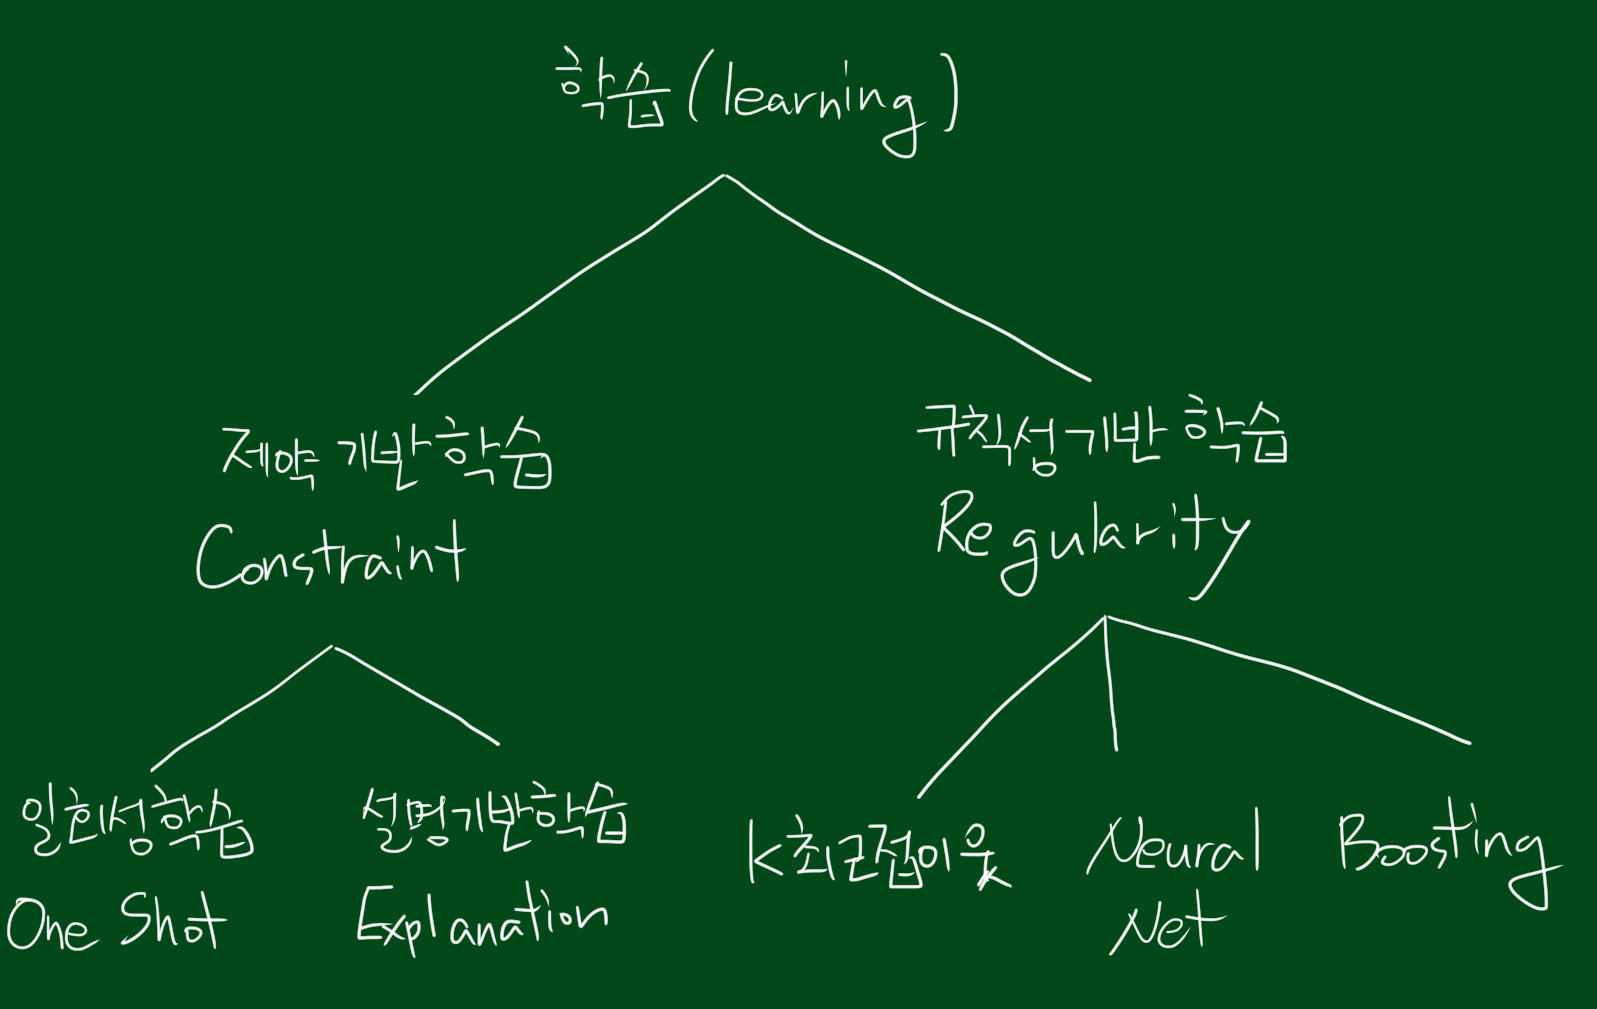 학습(learning)
제약 기반학습
Constraint
규칙성기반 학습
Regularity
일회성학습
One Shot
설명기반학습
Explanation
K최근접이웃
Neural
Net
Boosting